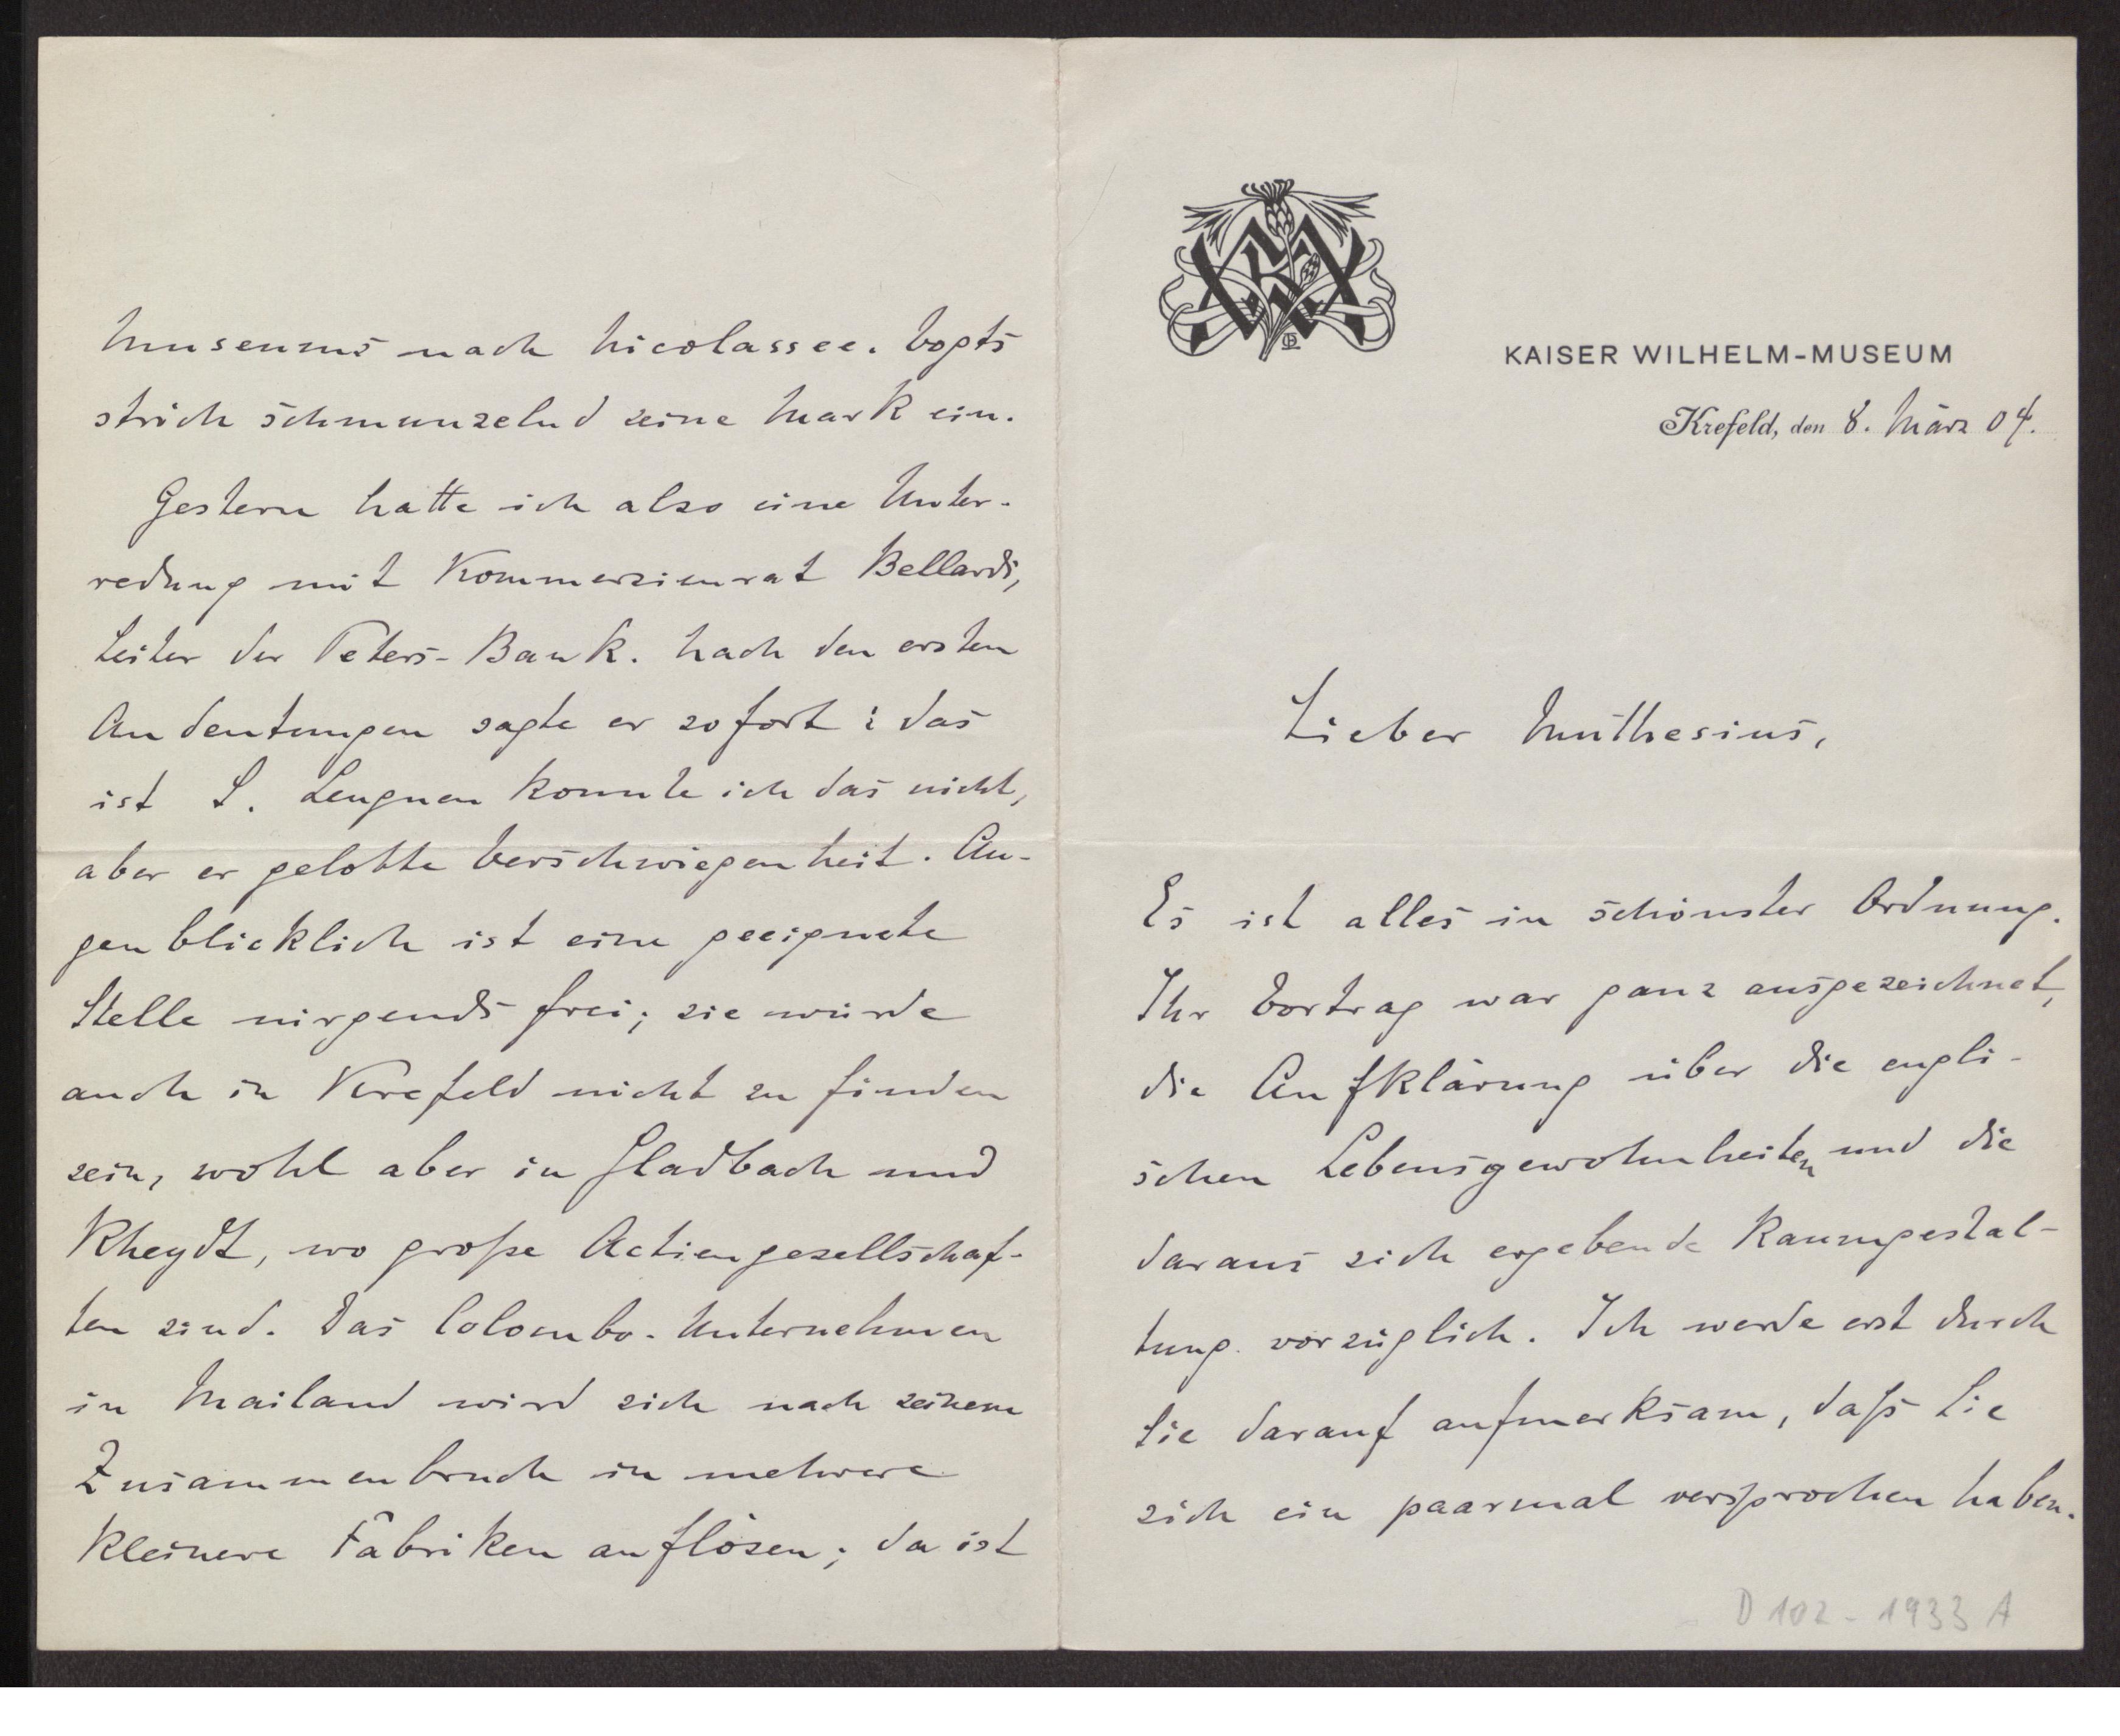 KAISER WILHELM-MUSEUM
Krefeld, den 8. März 04.
Lieber Muthesius,
Es ist alles in schönster Ordnung.
Ihr Vortrag war ganz ausgezeichnet,
die Aufklärung über die engli-
schen Lebensgewohnheiten und die
daraus sich ergebende Raumgestal-
tung vorzüglich. Ich werde erst durch
Sie darauf aufmerksam, daß Sie
sich ein paarmal versprochen haben.
D 102 - 1933 A
Museums nach Nicolassee. Vogts
strich schmunzelnd seine Mark ein.
Gestern hatte ich also eine Unter-
redung mit Kommerzienrat Bellardi,
Leiter der Peters-Bank. Nach den ersten
Andeutungen sagte er sofort: das
ist S. Leugnen konnte ich das nicht,
aber er gelobte Verschwiegenheit. Au-
genblicklich ist eine geeignete
Stelle nirgends frei; sie würde
auch in Krefeld nicht zu finden
sein, wohl aber in Gladbach und
Rheydt, wo große Actiengesellschaf-
ten sind. Das Colombo-Unternehmen
in Mailand wird sich nach seinem
Zusammenbruch in mehrere
kleinere Fabriken auflösen; da ist